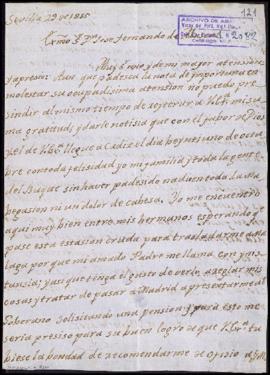 121
ARCHIVO DE
Sevilla 29 de 1815
Exmo Sr Dn Jose Fernando de
Muy Sr mio y de mi mayor atencion
y aprecio: Aun que padesca la nota de importuno en
molestar su ocupadisima atencion no puedo pres
sindir al mismo tiempo de
ma gratitud y darle notisia que con el fabor de Dios
llegue a Cadiz el dia beynte uno de octu
bre con toda felisidad yo mi familia y toda la gente
del Buque sin haver padesido nadie en toda la na
begasion ni un dolor de cabesa. Yo me encuentro
aqui muy bien entre mis hermanos esperando q.e
pase esta estasion cruda para trasladarme a
laga por que mi amado Padre me llama con yns
tansia; y asi que tenga el gusto de verlo areglar mis
cosas y tratar de pasar a Madrid a presentarme al
Soberano solisitando una pension y para esto me
seria presiso para su buen logro el que V.E. tu
biese la bondad de recomendarme de ofisio al